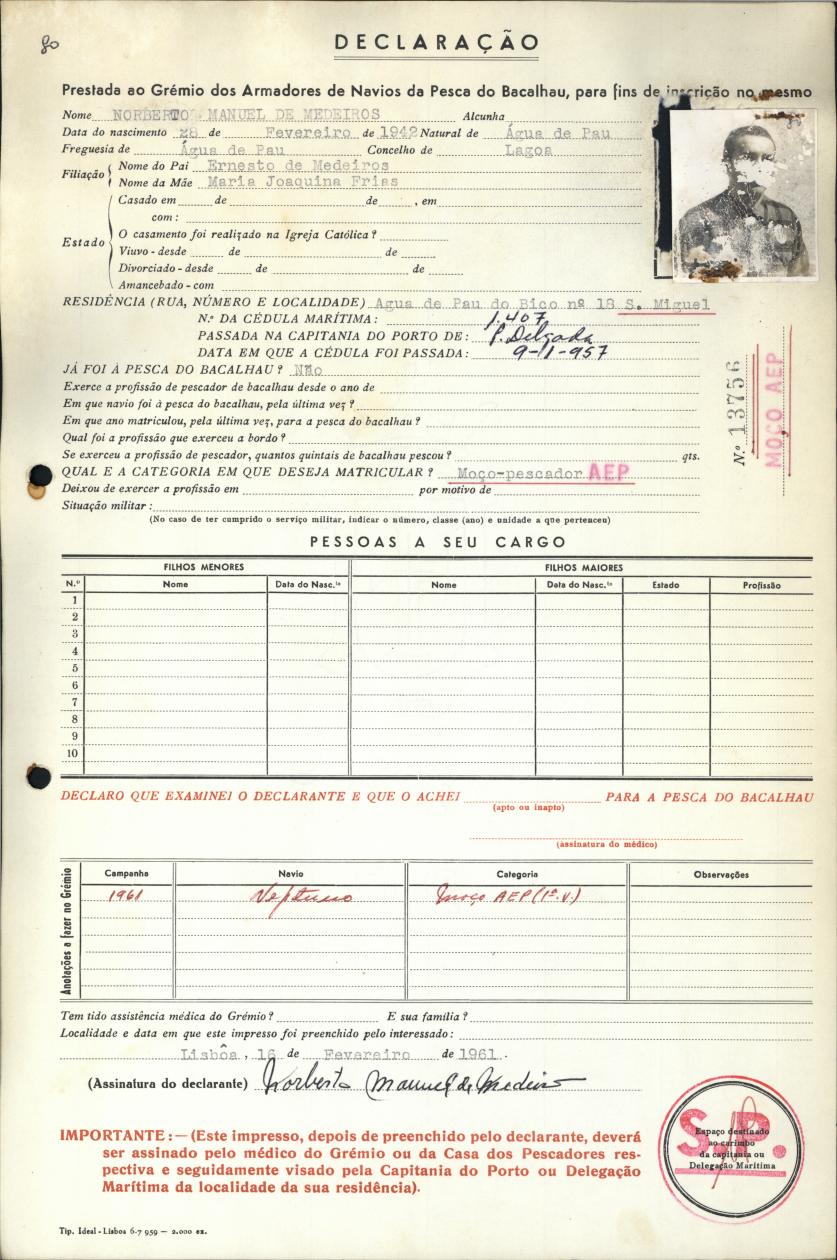 80
DECLARAÇÃO
Prestada ao Grémio dos Armadores de Navios da Pesca do Bacalhau, para fins de inscrição no mesmo
Nome NORBERTO MANUEL DE MEDEIROS Alcunha
Data do nascimento 28 de Fevereiro de 1942 Natural de Água de Pau
Freguesia de Água de Pau Concelho de Lagoa
Filiação Nome do Pai Ernesto de Medeiros
Nome da Mãe Maria Joaquina Frias
Estado
Casado em de de , em
com :
O casamento foi realizado na Igreja Católica ?
Viuvo - desde de de
Divorciado - desde de de
Amancebado - com
RESIDÊNCIA (RUA, NÚMERO E LOCALIDADE) Agua de Pau do Bico nº 18 S. Miguel
N.º DA CÉDULA MARÍTIMA : 1.407
PASSADA NA CAPITANIA DO PORTO DE : P. Delgada
DATA EM QUE A CÉDULA FOI PASSADA : 9-11-957
JÁ FOI À PESCA DO BACALHAU ? Não
Exerce a profissão de pescador de bacalhau desde o ano de
Em que navio foi à pesca do bacalhau, pela última vez ?
Em que ano matriculou, pela última vez, para a pesca do bacalhau ?
Qual foi a profissão que exerceu a bordo ?
Se exerceu a profissão de pescador, quantos quintais de bacalhau pescou ? qts.
QUAL E A CATEGORIA EM QUE DESEJA MATRICULAR ? Moço-pescador AEP
Deixou de exercer a profissão em por motivo de
Situação militar :
(No caso de ter cumprido o serviço militar, indicar o número, classe (ano) e unidade a que pertenceu)
N.º 13756
MOÇO AEP
PESSOAS A SEU CARGO
FILHOS MENORES FILHOS MAIORES
N.º Nome Data do Nasc.to Nome Data do Nasc.to Estado Profissão
1
2
3
4
5
6
7
8
9
10
DECLARO QUE EXAMINEI O DECLARANTE E QUE O ACHEI PARA A PESCA DO BACALHAU
(apto ou inapto)
(assinatura do médico)
Anotações a fazer no Grémio
Campanha Navio Categoria Observações
1961 Neptuno Moço AEP (1ª.v.)
Tem tido assistência médica do Grémio ? E sua família ?
Localidade e data em que este impresso foi preenchido pelo interessado :
Lisbôa , 16 de Fevereiro de 1961 .
(Assinatura do declarante) Norberto Manuel de Medeiros
IMPORTANTE : — (Este impresso, depois de preenchido pelo declarante, deverá
ser assinado pelo médico do Grémio ou da Casa dos Pescadores res-
pectiva e seguidamente visado pela Capitania do Porto ou Delegação
Marítima da localidade da sua residência).
S.P.
Espaço destinado
ao carimbo
da capitania ou
Delegação Marítima
Tip. Ideal - Lisboa 6-7 959 — 2.000 ex.